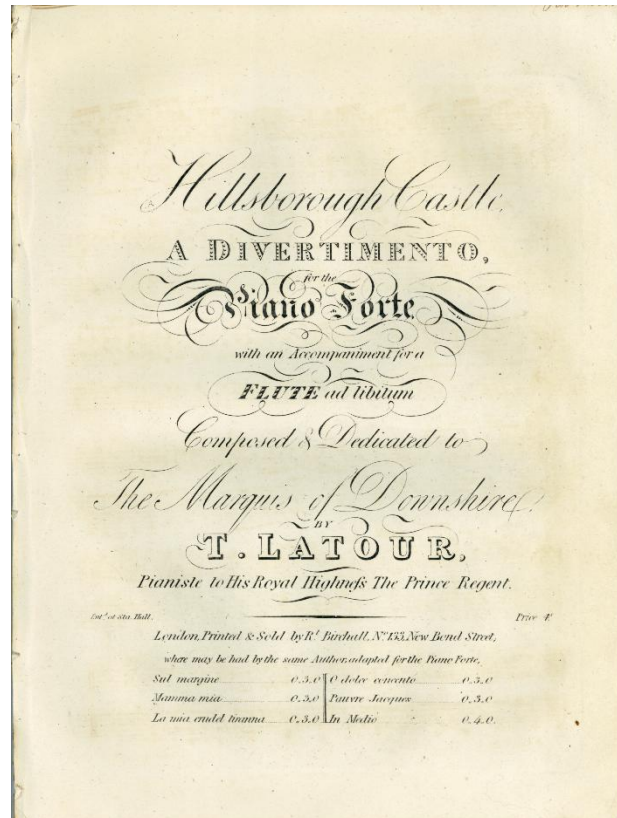 Hillsborough Castle,
A DIVERTIMENTO,
for the
Piano Forte
with an Accompaniment for a
FLUTE ad libitum
Composed & Dedicated to
The Marquis of Downshire,
BY
T. LATOUR,
Pianiste to His Royal Highneſs The Prince Regent.
Ent.d at Sta. Hall. Price 4/
London, Printed & Sold by R.t Birchall, N.o 133, New Bond Street,
where may be had by the same Author, adapted for the Piano Forte,
Sul margine 0.3.0 O dolce concento 0.3.0
Mamma mia 0.3.0 Pauvre Jacques 0.3.0
La mia 0.3.0 In Medio 0.4.0.